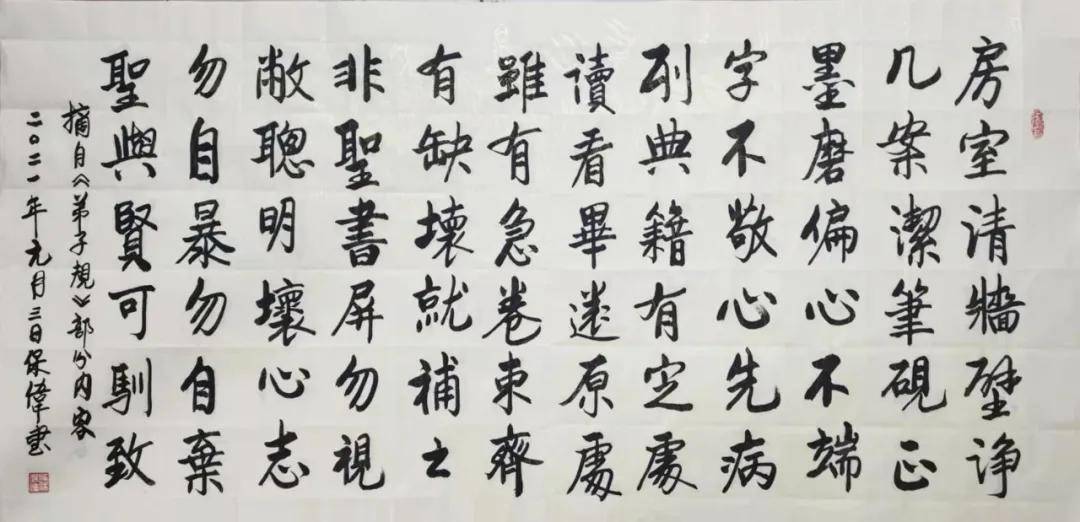 房室清牆壁净
几案潔筆硯正
墨磨偏心不端
字不敬心先病
列典籍有定處
讀看畢還原處
雖有急卷束齊
有缺壞就補之
非聖書屏勿視
敝聰明壞心志
勿自暴勿自棄
聖與賢可馴致
摘自《弟子規》部分内容
二〇二一年元月三日保偉書